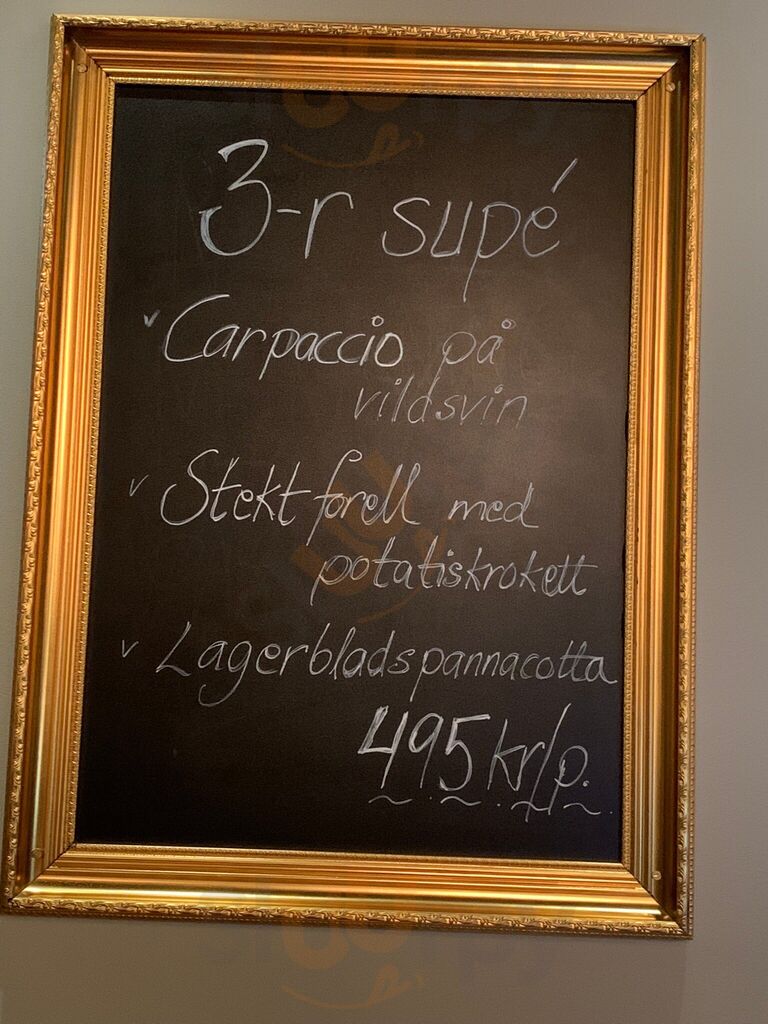 3-r supé
v Carpaccio på
vildsvin
v Stekt forell med
potatiskrokett
v Lagerbladspannacotta
495 kr/p.